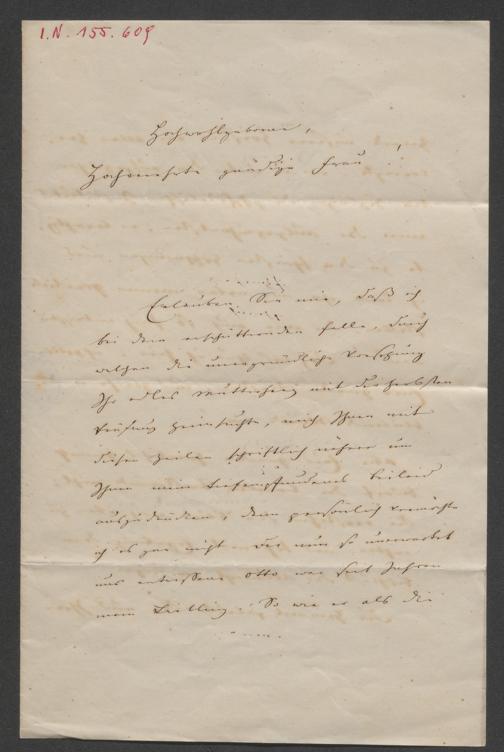 I.N. 155.609
Hochwohlgeborne,
Hochverehrte gnädige Frau!
Erlauben Sie mir, daß ich
bei dem erschütternden Falle, durch
welchen die unergründliche Vorsehung
Ihr edles Mutterherz mit der herbsten
Prüfung heimsuchte, mich Ihnen mit
diesen Zeilen schriftlich nähere um
Ihnen mein tiefempfundenes Beileid
auszudrücken, denn persönlich vermöchte
ich es gar nicht. Der nun so unerwartet
uns entrissene Otto war seit Jahren
mein Liebling. So wie er als die